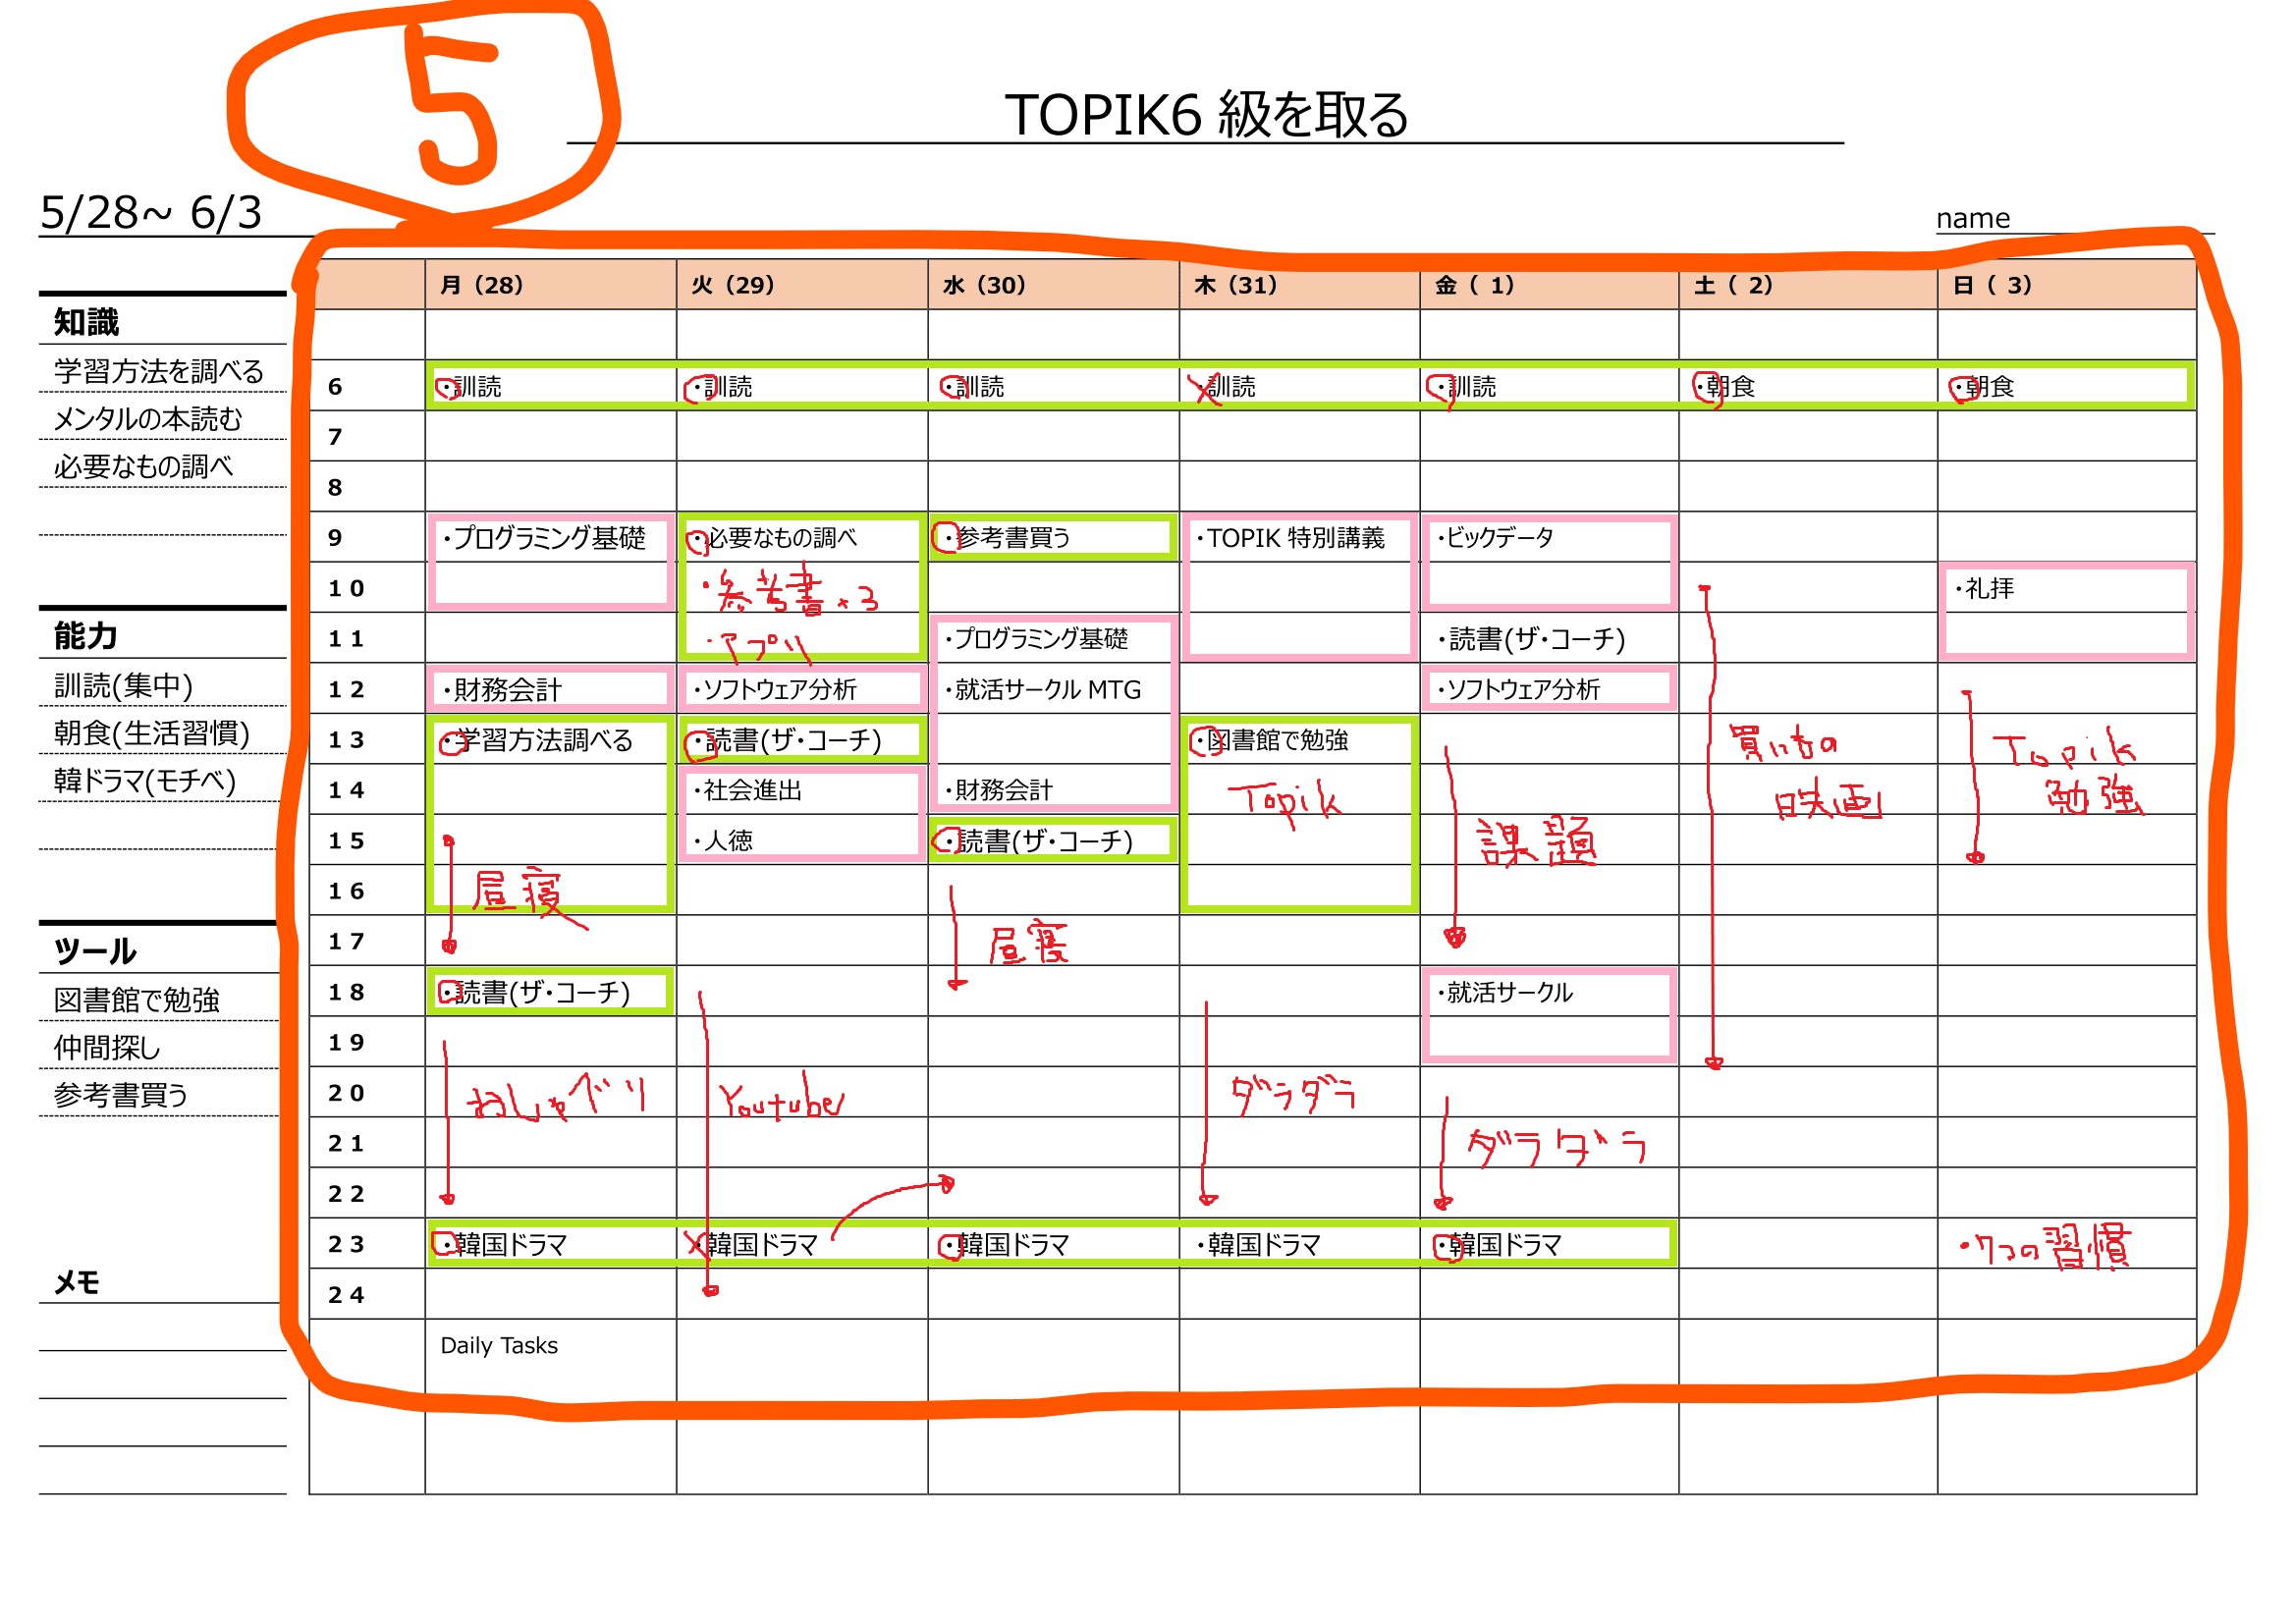 5
TOPIK6 級を取る
5/28~ 6/3
name
知識
学習方法を調べる
メンタルの本読む
必要なもの調べ
能力
訓読(集中)
朝食(生活習慣)
韓ドラマ(モチベ)
ツール
図書館で勉強
仲間探し
参考書買う
メモ
月（28） 火（29） 水（30） 木（31） 金（ 1） 土（ 2） 日（ 3）
6 ・訓読 ・訓読 ・訓読 ・訓読 ・訓読 ・朝食 ・朝食
7
8
9 ・プログラミング基礎 ・必要なもの調べ ・参考書買う ・TOPIK 特別講義 ・ビックデータ
10 ・参考書×3 ・礼拝
11 ・アプリ ・プログラミング基礎 ・読書(ザ・コーチ)
12 ・財務会計 ・ソフトウェア分析 ・就活サークル MTG ・ソフトウェア分析
13 ・学習方法調べる ・読書(ザ・コーチ) ・図書館で勉強 買いもの Topik
14 ・社会進出 ・財務会計 Topik 映画 勉強
15 ・人徳 ・読書(ザ・コーチ) 課題
16 昼寝
17 昼寝
18 ・読書(ザ・コーチ) ・就活サークル
19
20 おしゃべり Youtube ダラダラ
21 ダラダラ
22
23 ・韓国ドラマ ・韓国ドラマ ・韓国ドラマ ・韓国ドラマ ・韓国ドラマ ・7つの習慣
24
Daily Tasks